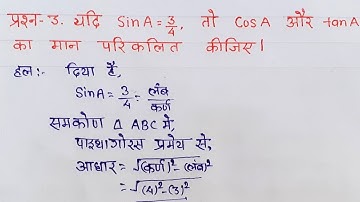 प्रश्न-3. यदि SinA = 3/4, तो CosA और tanA
का मान परिकलित कीजिए।
हल:- दिया है,
SinA = 3/4 = लंब/कर्ण
समकोण Δ ABC में,
पाइथागोरस प्रमेय से,
आधार = √(कर्ण)² - (लंब)²
= √(4)² - (3)²